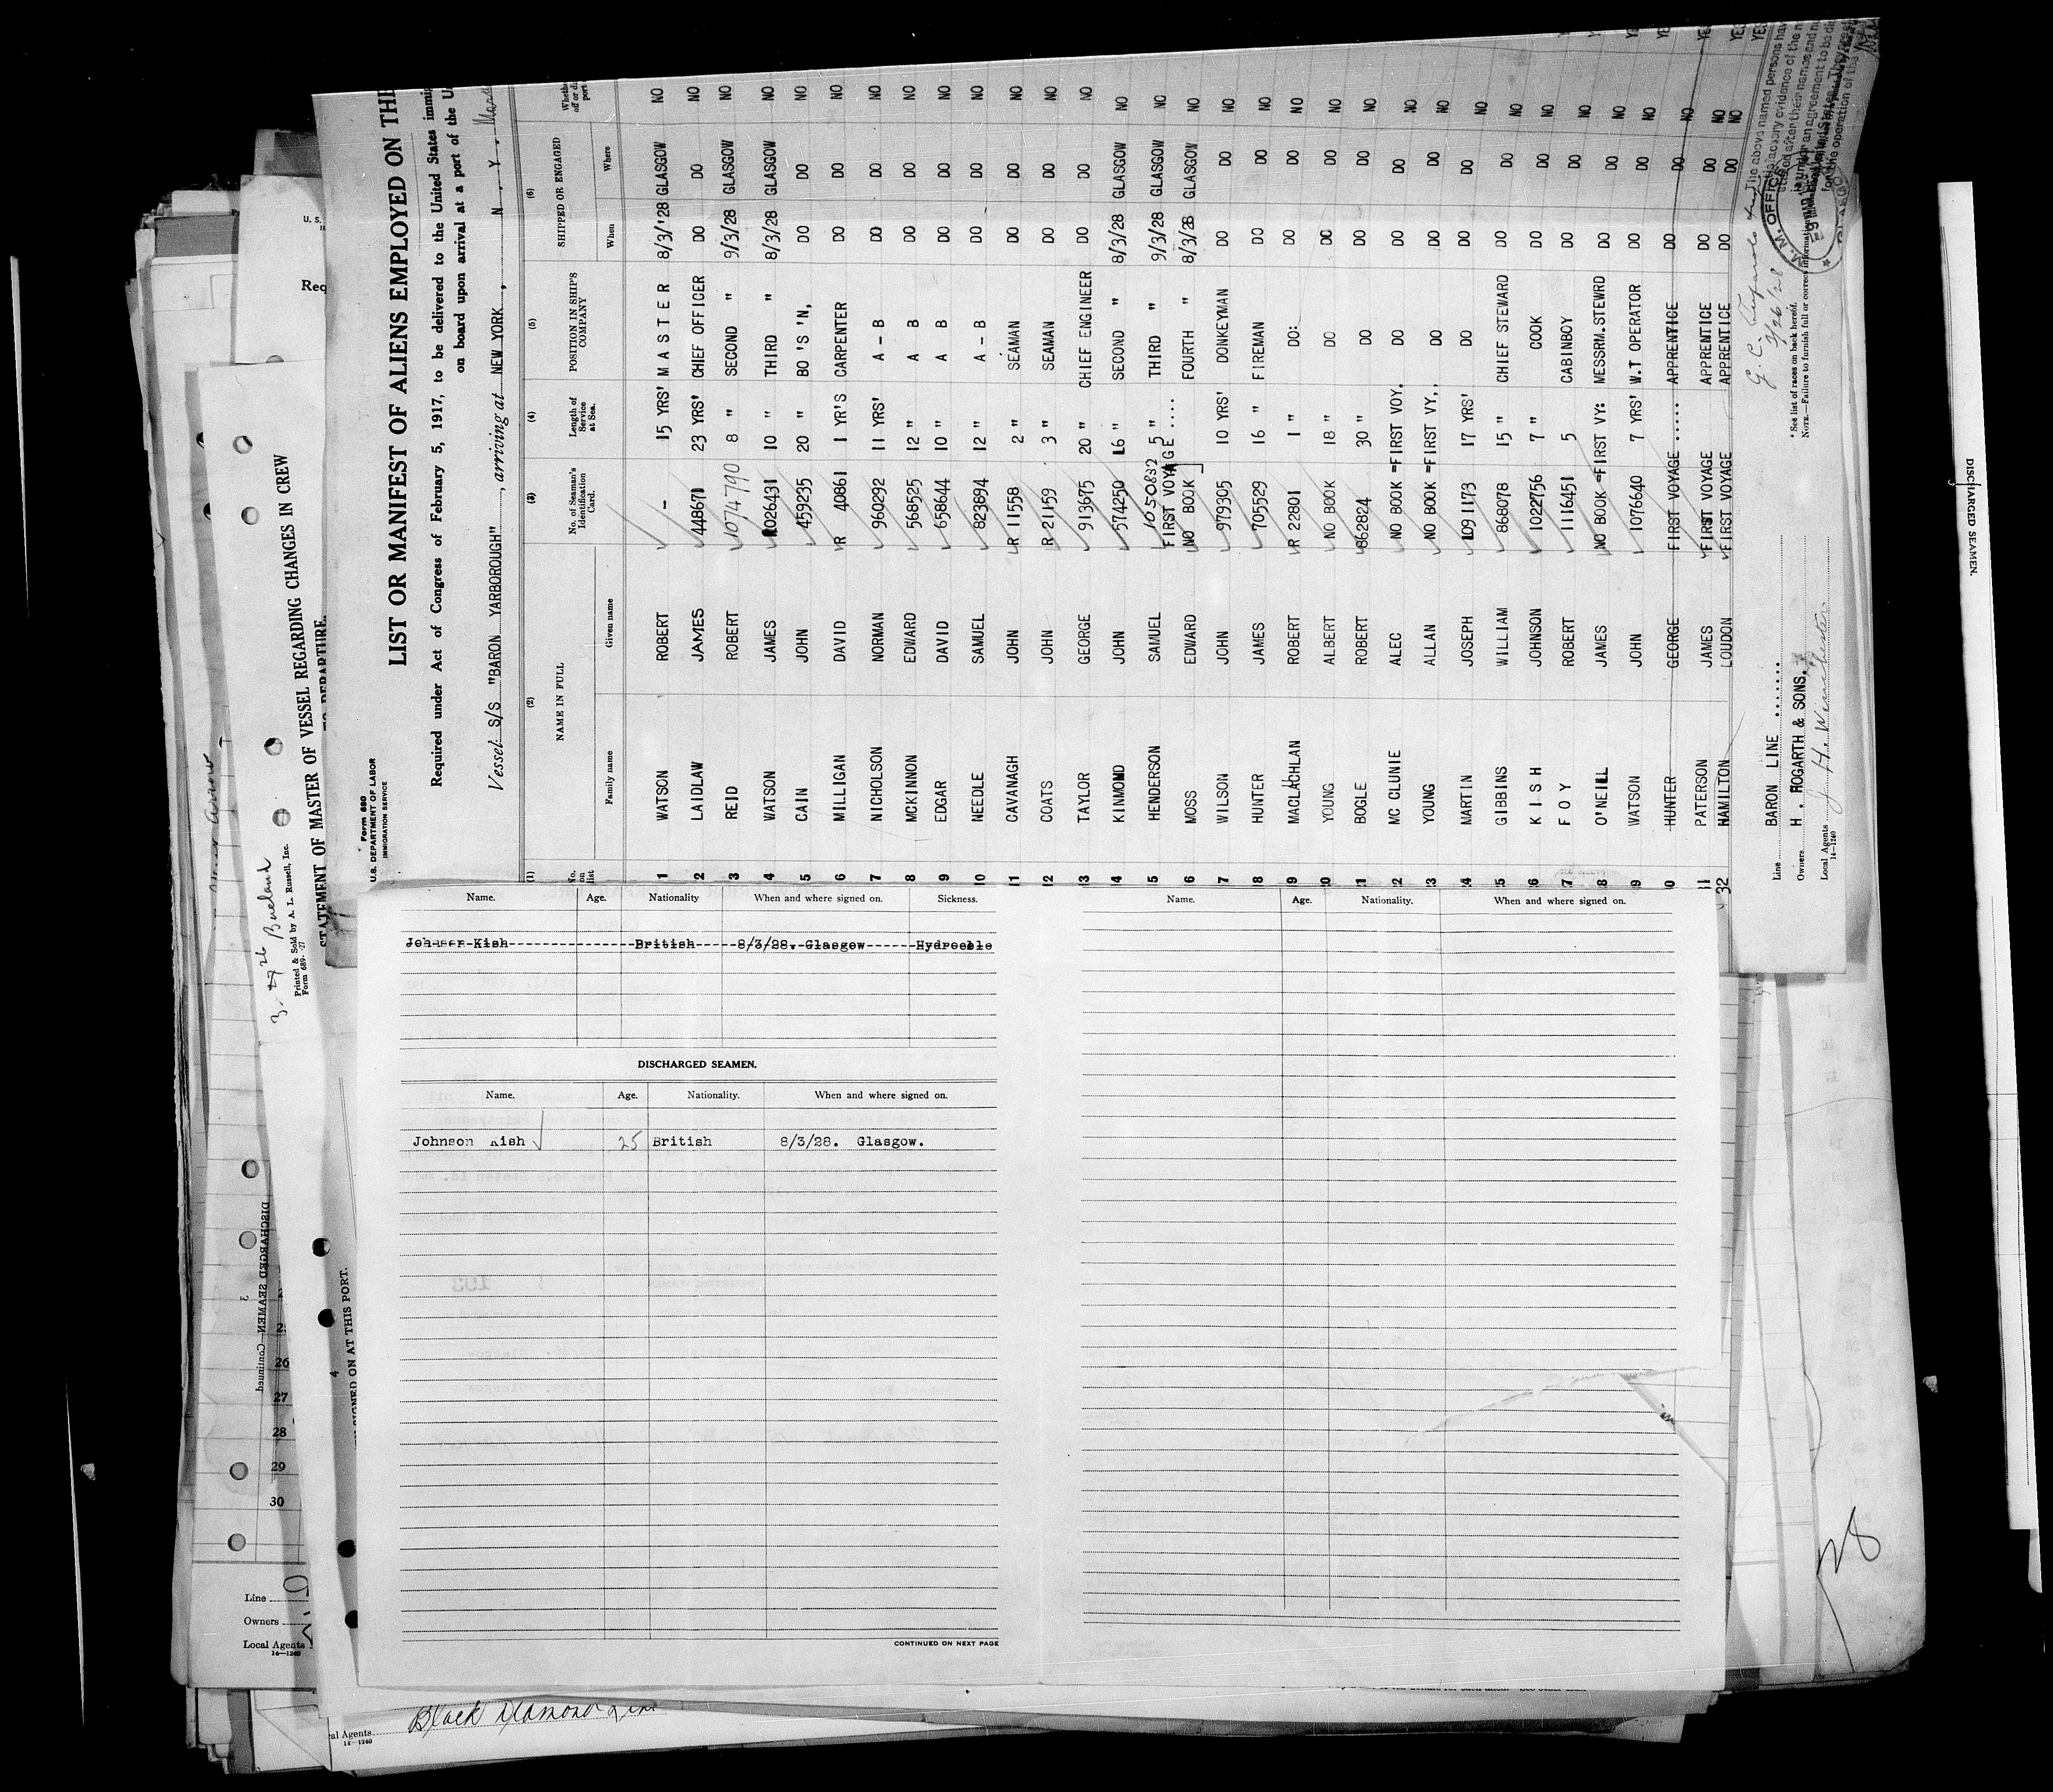 Form 680
U.S. DEPARTMENT OF LABOR
IMMIGRATION SERVICE
LIST OR MANIFEST OF ALIENS EMPLOYED ON THE
Required under Act of Congress of February 5, 1917, to be delivered to the United States immig
on board upon arrival at a port of the U
Vessel S/S "BARON YARBOROUGH", arriving at NEW YORK, N. Y.
(1) (2) (3) (4) (5) (6)
No. on list NAME IN FULL No. of Seaman's Identification Card. Length of Service at Sea. POSITION IN SHIP'S COMPANY SHIPPED OR ENGAGED
Family name Given name When Where
1 WATSON ROBERT - 15 YRS' MASTER 8/3/'28 GLASGOW NO
2 LAIDLAW JAMES 448671 23 YRS' CHIEF OFFICER DO DO NO
3 REID ROBERT 1074790 8 " SECOND " 9/3/28 GLASGOW NO
4 WATSON JAMES 1026431 10 " THIRD " 8/3/28 GLASGOW NO
5 CAIN JOHN 459235 20 " BO'S'N, DO DO NO
6 MILLIGAN DAVID R 40861 1 YR'S CARPENTER DO DO NO
7 NICHOLSON NORMAN 960292 11 YRS' A - B DO DO NO
8 MCKINNON EDWARD 568525 12 " A B DO DO NO
9 EDGAR DAVID 658644 10 " A B DO DO NO
10 NEEDLE SAMUEL 823894 12 " A - B DO DO NO
11 CAVANAGH JOHN R 11558 2 " SEAMAN DO DO NO
12 COATS JOHN R 21159 3 " SEAMAN DO DO NO
13 TAYLOR GEORGE 913675 20 " CHIEF ENGINEER DO DO NO
14 KINMOND JOHN 574250 16 " SECOND " 8/3/28 GLASGOW NO
5 HENDERSON SAMUEL 1050832 5 " THIRD " 9/3/28 GLASGOW NO
FIRST VOYAGE ....
6 MOSS EDWARD NO BOOK FOURTH " 8/3/28 GLASGOW NO
7 WILSON JOHN 979305 10 YRS' DONKEYMAN DO DO NO
8 HUNTER JAMES 705529 16 " FIREMAN DO DO NO
9 MACLACHLAN ROBERT R 22801 1 " DO: DO DO NO
0 YOUNG ALBERT NO BOOK 18 " DO DO DO NO
1 BOGLE ROBERT 862824 30 " DO DO DO NO
2 MC CLUNIE ALEC NO BOOK =FIRST VOY. DO DO DO NO
3 YOUNG ALLAN NO BOOK =FIRST VY., DO DO DO NO
4 MARTIN JOSEPH 1091173 17 YRS' DO DO DO NO
5 GIBBINS WILLIAM 868078 15 " CHIEF STEWARD DO DO NO
6 KISH JOHNSON 1022756 7 " COOK DO DO NO
7 FOY ROBERT 1116451 5 CABINBOY DO DO NO
8 O'NEILL JAMES NO BOOK =FIRST VY: MESSRM.STEWRD DO DO NO
9 WATSON JOHN 1076640 7 YRS' W.T OPERATOR DO DO NO
0 HUNTER GEORGE FIRST VOYAGE ..... APPRENTICE DO DO NO
1 PATERSON JAMES FIRST VOYAGE APPRENTICE DO DO NO
32 HAMILTON LOUDON FIRST VOYAGE APPRENTICE DO DO NO
Line BARON LINE .......
Owners H. HOGARTH & SONS.
Local Agents J. H. Winchester
14-1240
* See list of races on back hereof.
3/26/28
The above named persons have
Name. Age. Nationality When and where signed on. Sickness.
Johnson Kish British 8/3/28. Glasgow Hydrocele
DISCHARGED SEAMEN.
Name. Age. Nationality. When and where signed on.
Johnson Kish 25 British 8/3/28. Glasgow.
CONTINUED ON NEXT PAGE
Name. Age. Nationality. When and where signed on.
STATEMENT OF MASTER OF VESSEL REGARDING CHANGES IN CREW
Printed & Sold by A. L. Russell, Inc.
DISCHARGED SEAMEN—Continued
SIGNED ON AT THIS PORT.
26
27
28
29
30
Line
Owners
Local Agents
14-1240
Black Diamond Line
al Agents
14-1240
DISCHARGED SEAMEN.
28